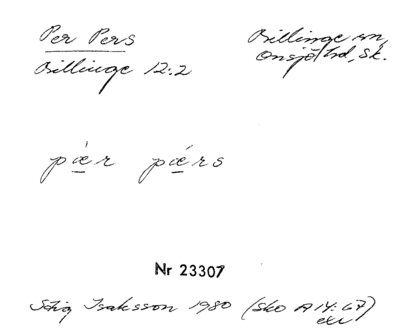 Per Pers
Billinge 12:2
Billinge sn,
Onsjö hd, Sk.
pæ̀r pǽrs
Nr 23307
Stig Isaksson 1980 (Sko A 14:67)